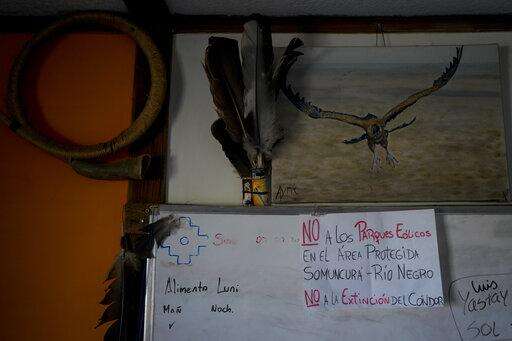 NO A LOS PARQUES EÓLICOS
EN EL ÁREA PROTEGIDA
SOMUNCURÁ-RÍO NEGRO
NO A LA EXTINCIÓN DEL CÓNDOR
Alimento Luni
Mañ Noch.
Luis
Yastay
SOL